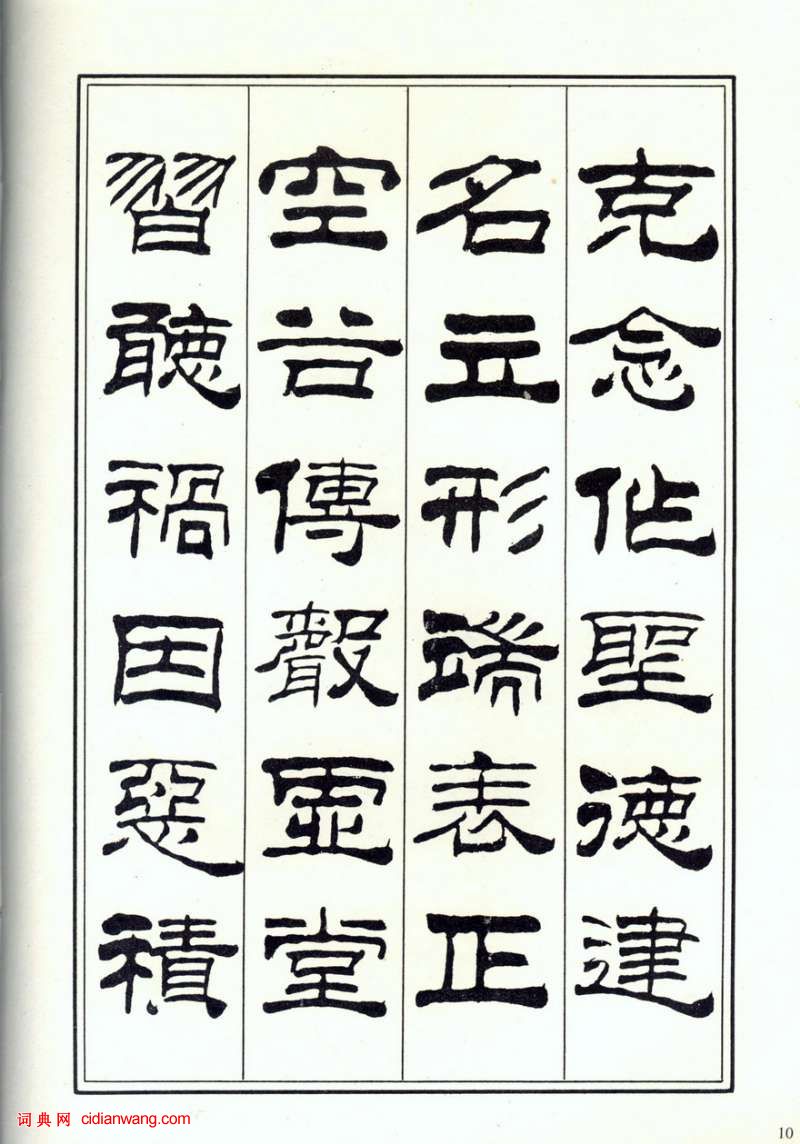 克念作聖德建
名立形端表正
空谷傳聲虛堂
習聽禍因惡積
词典网 cidianwang.com
10